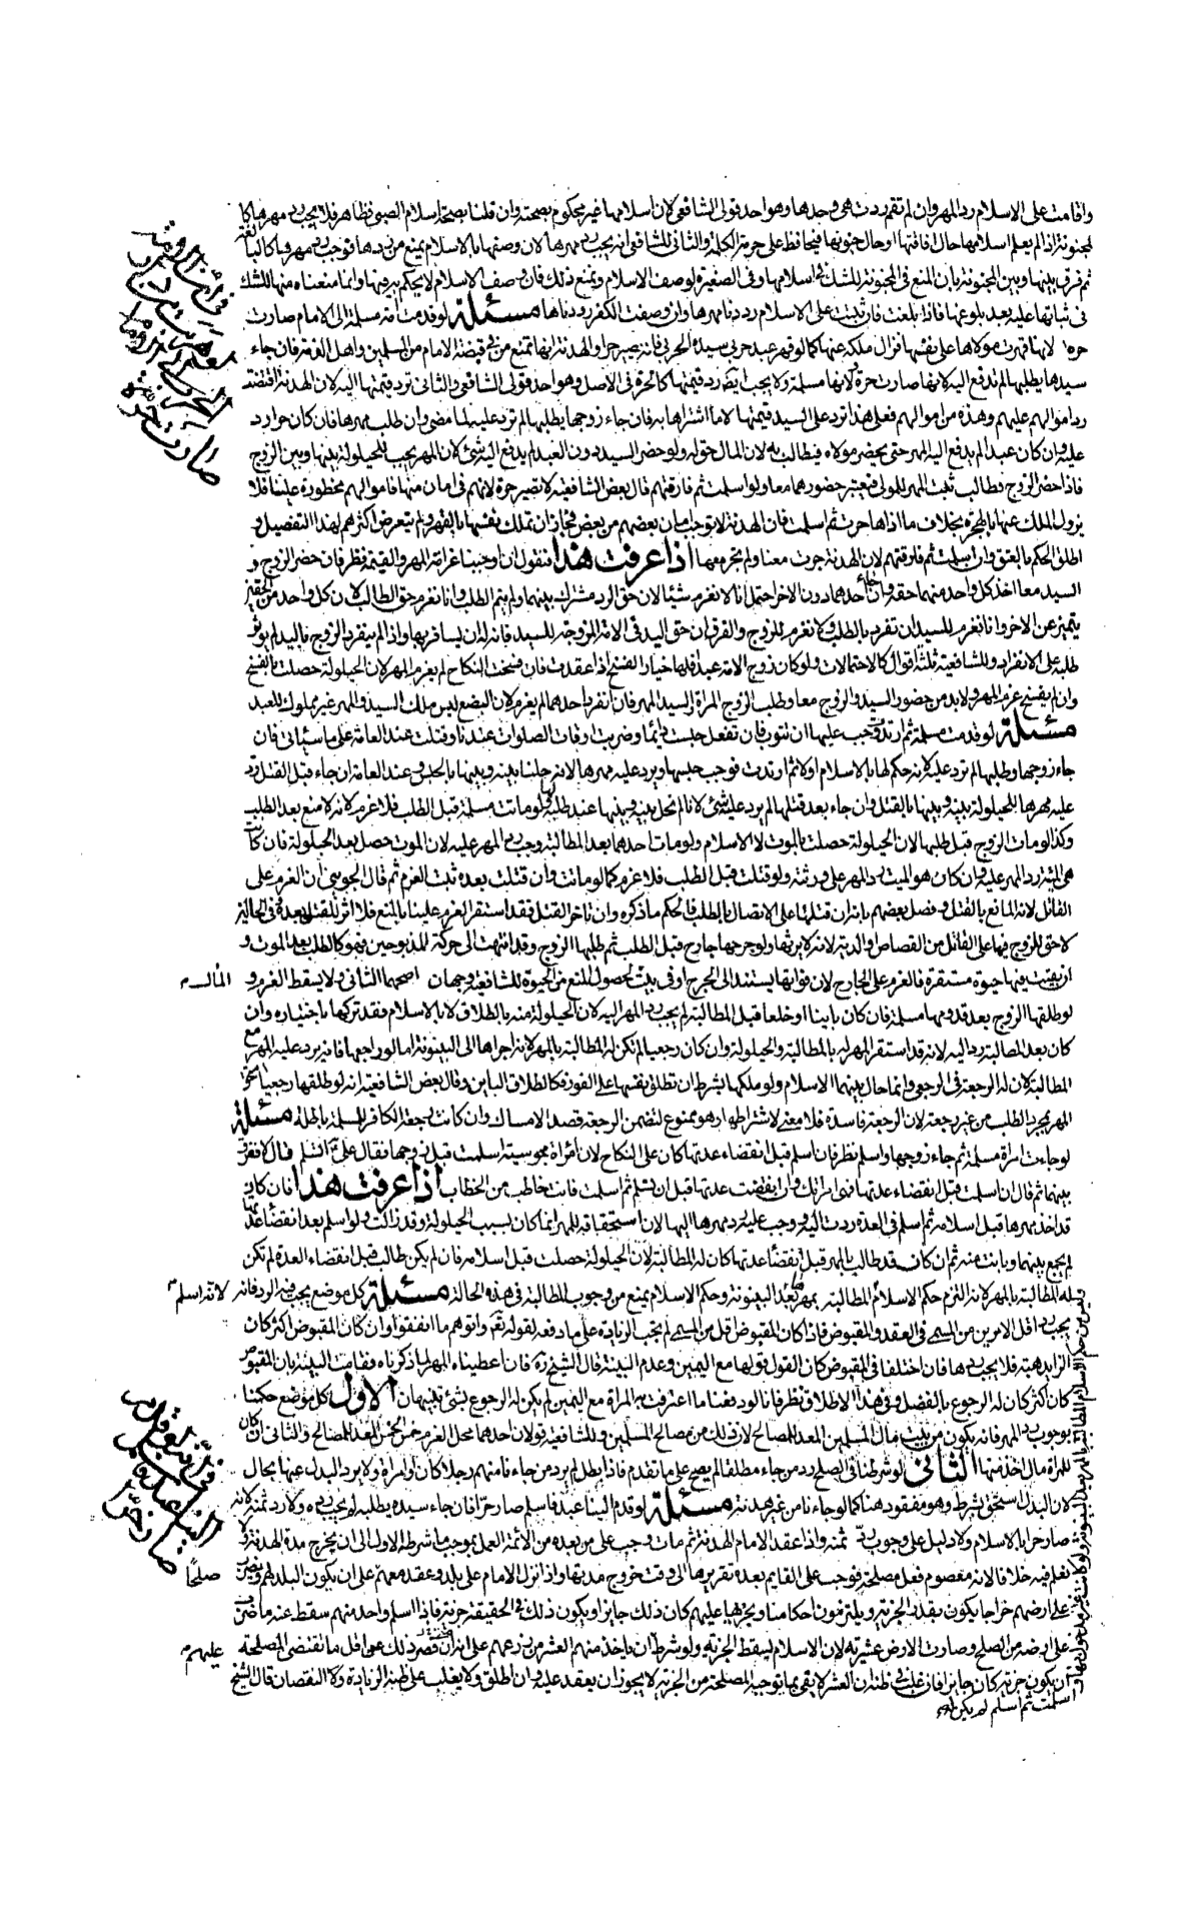 واقامت على الاسلام رد المهر وان لم تقم ردت هي وحدها وهو احد قولي الشافعي لان اسلامها غير محكوم بصحته وان قلنا بصحة اسلام الصبي فظاهر فلا يجب رد مهرها كا
لمجنونة اذا لم يعلم اسلامها حال افاقتها او حال جنونها فيحافظ على حرمة الكلمة والثاني للشافعي انه يجب رد مهرها لان وصفها بالاسلام يمنع من ردها فوجب رد مهرها كالبالغة
ثم فرق بينها وبين المجنونة بان المنع في المجنونة للشك في اسلامها وفي الصغيرة لوصف الاسلام ويمنع ذلك فان وصف الاسلام لا يحكم به فيها وانما منعناه منها للشك
في ثباتها عليه بعد بلوغها فاذا بلغت فان ثبتت على الاسلام رددنا مهرها وان وصفت الكفر رددناها مسئلة لو قدمت امة مسلمة الى الامام صارت
حرة لانها قهرت مولاها على نفسها فزال ملكه عنها كما لو قهر عبد حربي سيده الحربي فانه يصير حرا والهدنة انها تمنع من في قبضة الامام من المسلمين واهل الذمة فان جاء
سيدها يطلبها لم تدفع اليه لانها صارت حرة ولانها مسلمة ولا يجب ايضا رد قيمتها كالحرة في الاصل وهو احد قولي الشافعي والثاني ترد قيمتها اليه لان الهدنة اقتضت
رد اموالهم عليهم وهذه من اموالهم فعلى هذا ترد على السيد قيمتها لا ما اشتراها به فان جاء زوجها يطلبها لم ترد عليه لما مضى وان طلب مهرها فان كان حرا رد
عليه وان كان عبدا لم يدفع اليه المهر حتى يحضر مولاه فيطالب به لان المال حق له ولو حضر السيد دون العبد لم يدفع اليه شئ لان المهر يجب للحيلولة بينها وبين الزوج
فاذا حضر الزوج فطالب ثبت المهر للمولى فيعتبر حضورهما معا ولو اسلمت ثم فارقتهم قال بعض الشافعية لا تصير حرة لانهم في امان منها فاموالهم محظورة علينا فلا
يزول الملك عنها بالهجرة بخلاف ما اذا هاجرت ثم اسلمت فان الهدنة لا توجب امان بعضهم من بعض فجاز ان تملك نفسها بالقهر ولم يتعرض اكثرهم لهذا التفصيل و
اطلق الحكم بالعتق وان اسلمت ثم فارقتهم لان الهدنة جرت معنا ولم تجر معها اذا عرفت هذا فنقول ان اوجبنا غرامة المهر والقيمة نظر فان حضر الزوج و
السيد معا اخذ كل واحد منهما حقه وان جاء احدهما دون الاخر احتمل انا لا نغرم شيئا لان حق الرد مشترك بينهما ولم يتم الطلب وانا نغرم حق الطالب لان كل واحد من الحقين
يتميز عن الاخر وانا نغرم للسيد ان تفرد بالطلب ولا نغرم للزوج والفرق ان حق اليد في الامة المزوجة للسيد فانه له ان يسافر بها واذا لم ينفرد الزوج باليد لم يؤثر
طلبه على الانفراد وللشافعية ثلثة اقوال كالاحتمالات ولو كان زوج الامة عبدا فلها خيار الفسخ اذا عتقت فان فسخت النكاح لم يغرم المهر لان الحيلولة حصلت بالفسخ
وان لم يفسخ غرم المهر ولا بد من حضور السيد والزوج معا وطلب الزوج المراة والسيد المهر فان انفرد احدهما لم يغرم لان البضع ليس ملك السيد والمهر غير مملوك للعبد
مسئلة لو قدمت مسلمة ثم ارتدت وجب عليها ان تتوب فان لم تفعل حبست دائما وضربت اوقات الصلوات عندنا وقتلت عند العامة على ما سياتي فان
جاء زوجها وطلبها لم ترد عليه لانه حكم لها بالاسلام اولا ثم ارتدت فوجب حبسها ويرد عليه مهرها لانه حلنا بينه وبينها بالحبس وعند العامة ان جاء قبل القتل رد
عليه مهرها للحيلولة بينه وبينها بالقتل وان جاء بعد قتلها لم يرد عليه شئ لانا لم نحل بينه وبينها عند طلبه ولو ماتت مسلمة قبل الطلب فلا غرم لانه لا منع بعد الطلب
وكذا لو مات الزوج قبل طلبها لان الحيلولة حصلت بالموت لا الاسلام ولو مات احدهما بعد المطالبة وجب رد المهر عليه لان الموت حصل بعد الحيلولة فان كانت
هي الميتة رد المهر عليه وان كان هو الميت رد المهر على ورثته ولو قتلت قبل الطلب فلا غرم كما لو ماتت وان قتلت بعده ثبت الغرم ثم قال الجويني ان الغرم على
القاتل لانه المانع بالقتل وفصل بعضهم بانه ان قتلها على الاتصال بالطلب فالحكم ما ذكره وان تاخر القتل فقد استقر الغرم علينا بالمنع فلا اثر للقتل بعده وفي الحالين
لا حق للزوج فيما على القاتل من القصاص والدية لانه لا يرثها ولو جرحها جارح قبل الطلب ثم طلبها الزوج وقد انتهت الى حركة المذبوحين فهو كالطلب بعد الموت و
ان بقيت فيها حيوة مستقرة فالغرم على الجارح لان فواتها يستند الى الجرح او في بيت المال لحصول المنع من الحيوة للشافعية وجهان اصحهما الثاني ولا يسقط الغرم و
لو طلقها الزوج بعد قدومها مسلمة فان كان باينا او خلعا قبل المطالبة لم يجب رد المهر اليه لان الحيلولة منه بالطلاق لا بالاسلام فقد تركها باختياره وان
كان بعد المطالبة رد اليه لانه قد استقر المهر له بالمطالبة والحيلولة وان كان رجعيا لم تكن له المطالبة بالمهر لانه اجراها الى البينونة اما لو راجعها فانه يرد عليه المهر مع
المطالبة لان له الرجعة في الرجعي وانما حال بينهما الاسلام ولو ملكها بشرط ان تطلق نفسها على الفور فكالطلاق الباين وقال بعض الشافعية انه لو طلقها رجعيا استحق
المهر بمجرد الطلب من غير رجعة لان الرجعة فاسدة فلا معنى لاشتراطها وهو ممنوع لتضمن الرجعة قصد الامساك وان كانت رجعة الكافر المسلمة باطلة مسئلة
لو جاءت امراة مسلمة ثم جاء زوجها واسلم نظر فان اسلم قبل انقضاء عدتها كان على النكاح لان امراة مجوسية اسلمت قبل زوجها فقال علي ع اتسلم قال لا ففرق
بينهما ثم قال ان اسلمت قبل انقضاء عدتها فهي امراتك وان انقضت عدتها قبل ان تسلم ثم اسلمت فانت خاطب من الخطاب اذا عرفت هذا فان كان
قد اخذ مهرها قبل اسلامه ثم اسلم في العدة ردت اليه ووجب عليه رد مهرها اليها لان استحقاقه للمهر انما كان بسبب الحيلولة وقد زالت ولو اسلم بعد انقضاء عدتها
لم يجمع بينهما وبانت منه ثم ان كان قد طالب بالمهر قبل انقضاء عدتها كان له المطالبة لان الحيلولة حصلت قبل اسلامه فان لم يكن طالب قبل انقضاء العدة لم تكن
له المطالبة بالمهر لانه التزم حكم الاسلام المطالبة بمهرها بعد البينونة وحكم الاسلام يمنع من وجوب المطالبة في هذه الحالة مسئلة كل موضع يجب فيه الرد فانه
يجب رد اقل الامرين من المسمى في العقد والمقبوض فاذا كان المقبوض اقل من المسمى لم يجب الزيادة على ما دفعه لقوله تع واتوهم ما انفقوا وان كان المقبوض اكثر كان
الزايد هبة فلا يجب ردها فان اختلفا في المقبوض كان القول قولها مع اليمين وعدم البينة قال الشيخ ره فان اعطيناه المهر لما ذكرناه فقامت البينة بان المقبوض
كان اكثر كان له الرجوع بالفضل وفي هذا الاطلاق نظر فانا لو دفعنا ما اعترفت به المراة مع اليمين لم يكن له الرجوع بشئ تنبيهان الاول كل موضع حكمنا
بوجوب رد المهر فانه يكون من بيت مال المسلمين المعد للمصالح لان ذلك من مصالح المسلمين وللشافعية قولان احدهما محل الغرم خمس الخمس المعد للمصالح والثاني ان كان
للمراة مال اخذ منها الثاني لو شرطنا في الصلح رد من جاء مطلقا لم يصح على ما تقدم فاذا بطل لم يرد من جاءنا منهم رجلا كان او امراة ولا يرد البدل عنها بحال
لان البدل استحق بشرط وهو مفقود هنا كما لو جاءنا من غير هدنة مسئلة لو قدم الينا عبد فاسلم صار حرا فان جاء سيده يطلبه لم يجب رده ولا رد ثمنه لانه
صار حرا بالاسلام ولا دليل على وجوب رد ثمنه واذا عقد الامام الهدنة ثم مات وجب على من بعده من الائمة العمل بموجب ما شرطه الاول الى ان يخرج مدة الهدنة ولا
نعلم فيه خلافا لانه معصوم فعل مصلحة فوجب على القايم بعده تقريرها الى وقت خروج مدتها واذا نزل الامام على بلد وعقد معهم على ان يكون البلد لهم ويضرب
على ارضهم خراجا يكون بقدر الجزية ويلتزمون احكامنا ويجريها عليهم كان ذلك جايزا ويكون ذلك في الحقيقة جزية فاذا اسلم واحد منهم سقط عنه ما ضرب
على ارضه من الصلح وصارت الارض عشرية لان الاسلام يسقط الجزية ولو شرط ان ياخذ منهم العشر من زرعهم على انه ان قصر ذلك عن اقل ما تقتضي المصلحة
ان يكون جزية كان جايزا فان غلب في ظنه ان العشر لا يفي بما توجبه المصلحة من الجزية لا يجوز ان يعقد عليه وان اطلق ولا يغلب على ظنه الزيادة ولا النقصان قال الشيخ
اسلمت ثم اسلم لم يكن له
لانه اسلم
صلحا
عليهم